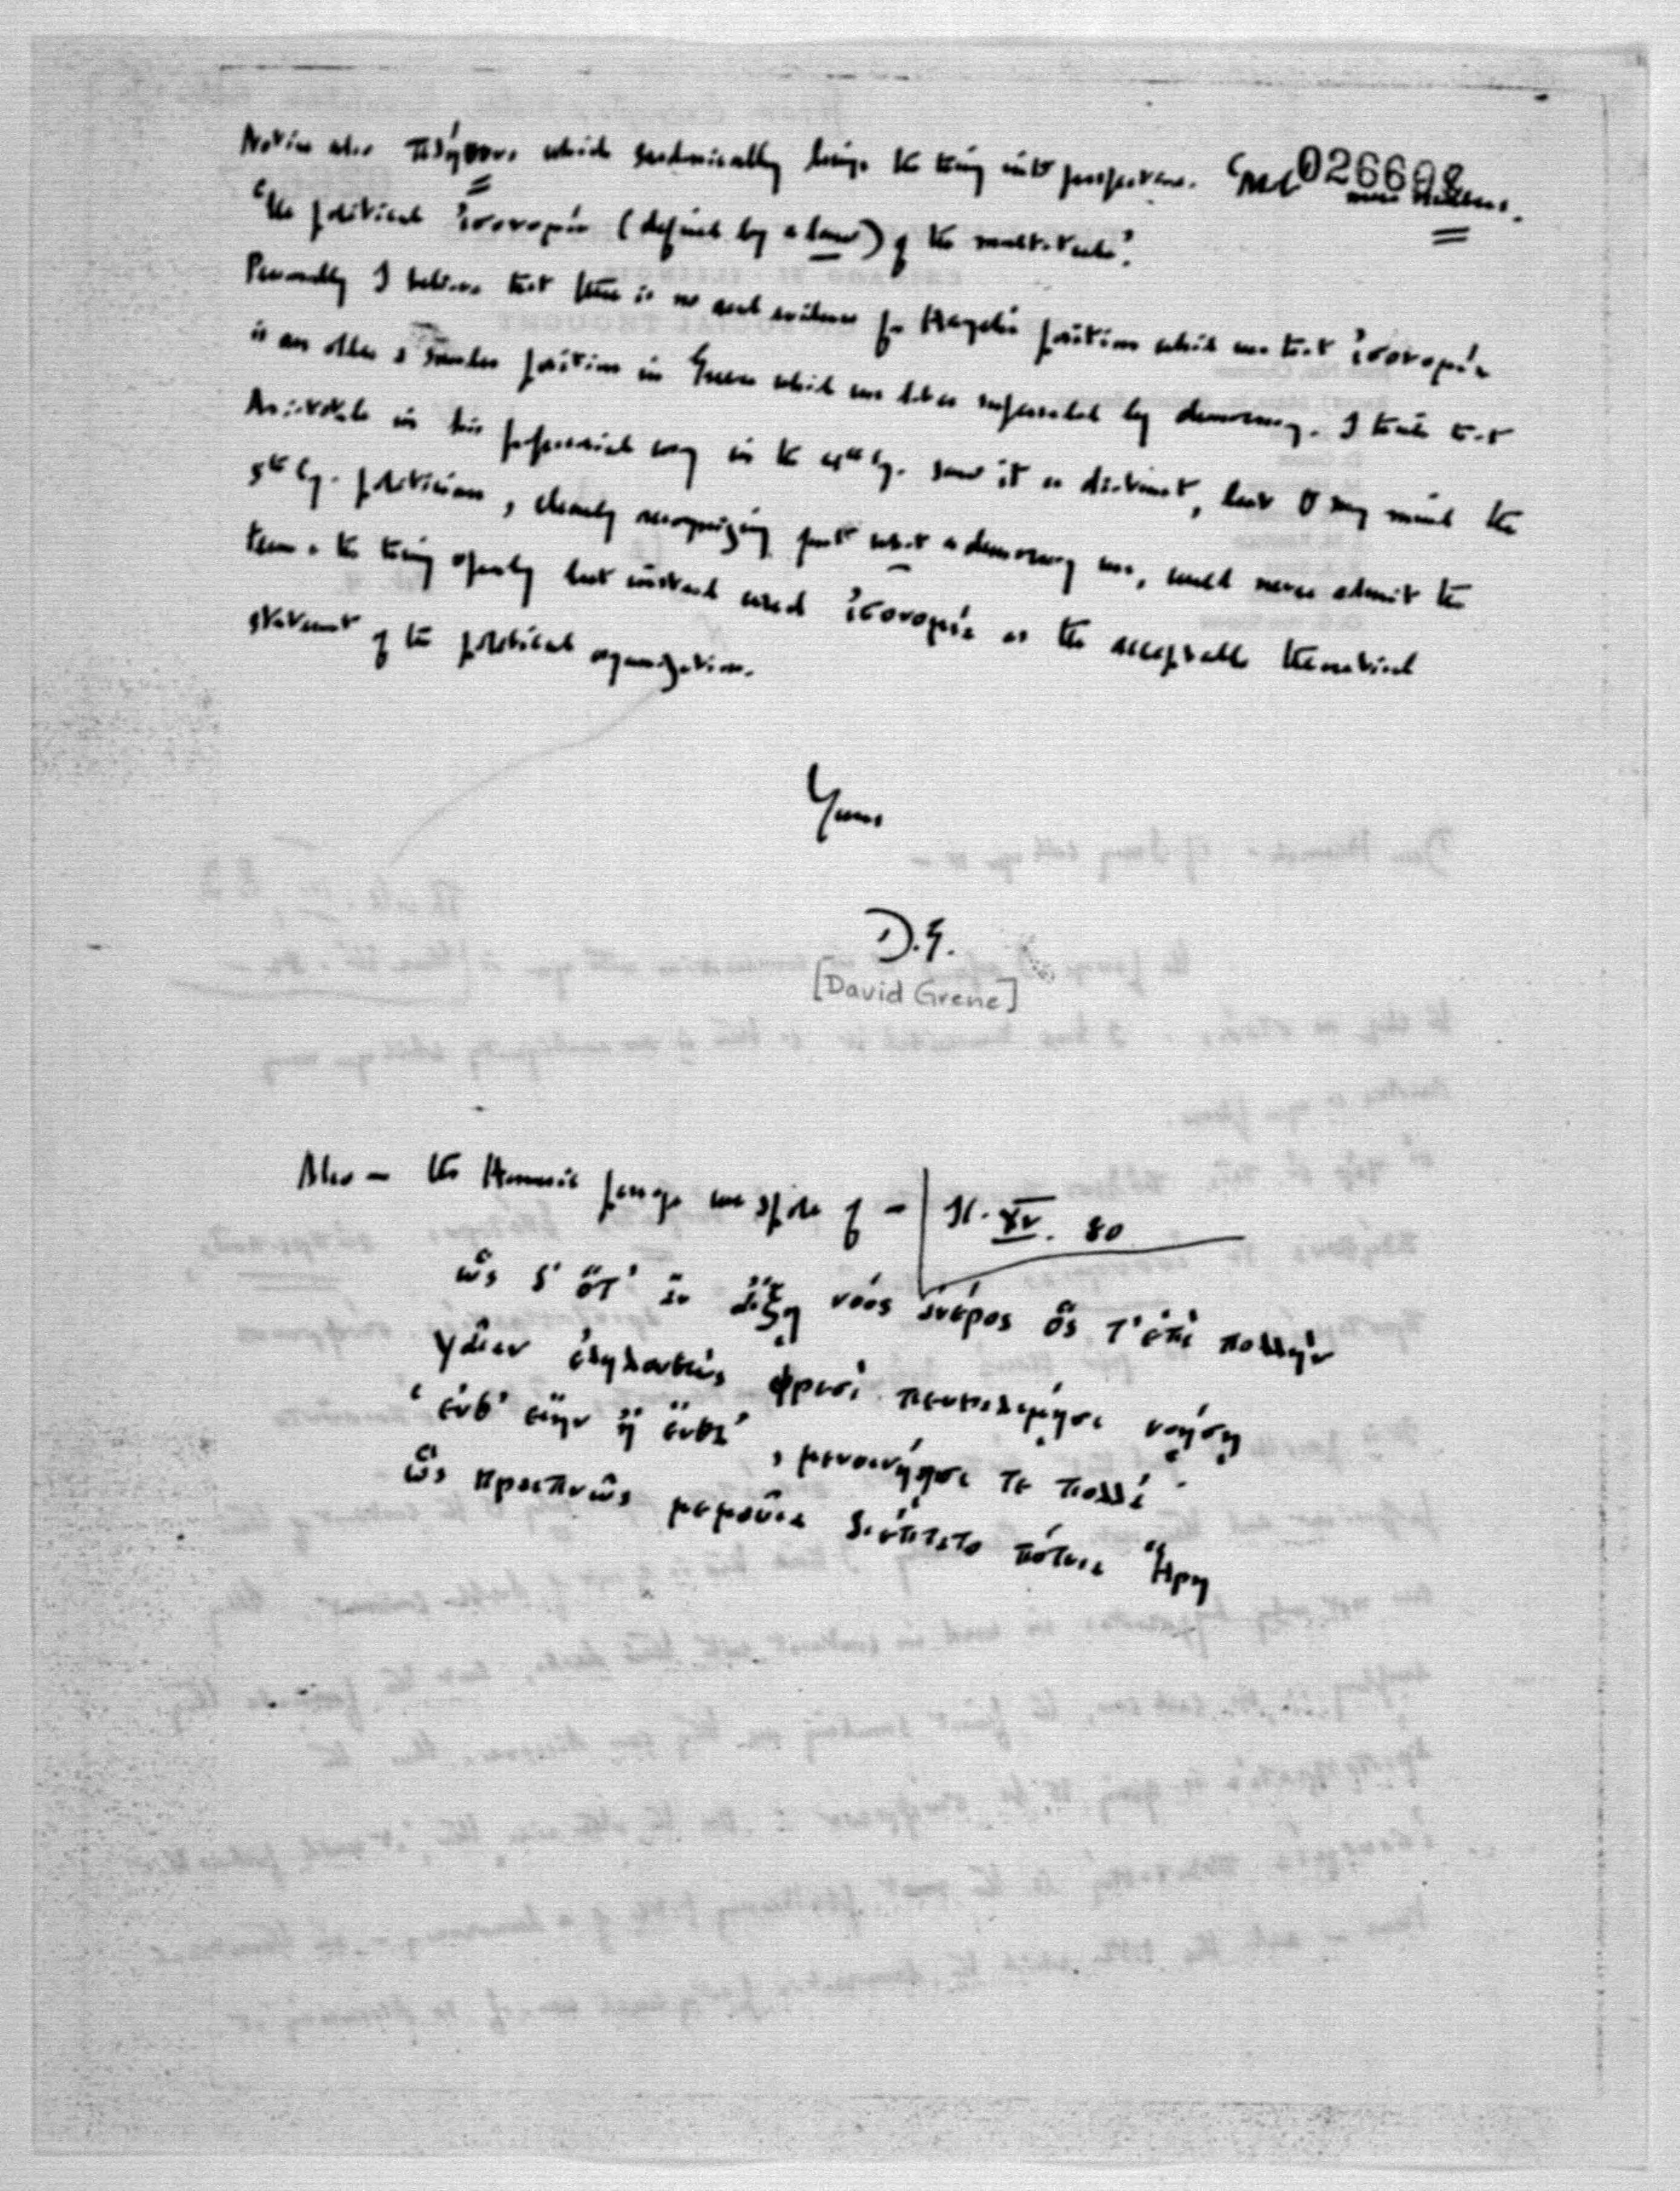 Notice also πλήθους which sardonically brings the thing into perspective. 026608
"the political ἰσονομία (defined by a law) of the multitude".
Personally I believe that there is no real evidence for Hayek's position which was that ἰσονομία
is an older & position in Greece which was later superseded by democracy. I think that
Aristotle in his way in the 4th Cy. saw it as distinct, but to my mind the
5th Cy. politicians, clearly recognizing just what a democracy was, would never admit the
the thing openly but instead used ἰσονομία as the acceptable theoretical
statement of the political organization.
Yours
D.G.
[David Grene]
Also — the Homeric passage we spoke of — Il. XV. 80
ὡς δ' ὅτ' ἂν ἀΐξῃ νόος ἀνέρος ὅς τ' ἐπὶ πολλὴν
γαῖαν ἐληλουθὼς φρεσὶ πευκαλίμῃσι νοήσῃ
'ἔνθ' εἴην ἢ ἔνθα', μενοινήῃσι τε πολλά
ὣς κραιπνῶς μεμαυῖα διέπτατο πότνια Ἥρη